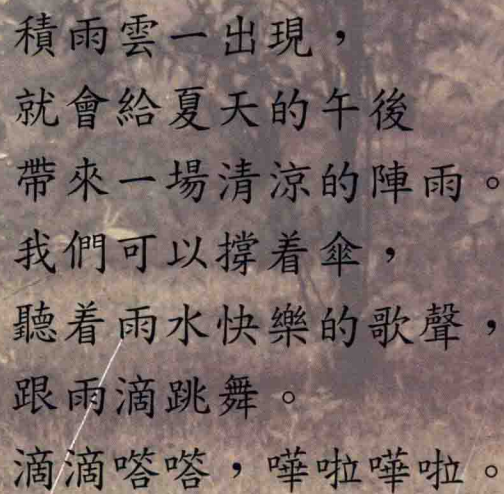 積雨雲一出現，
就會給夏天的午後
帶來一場清涼的陣雨。
我們可以撐着傘，
聽着雨水快樂的歌聲，
跟雨滴跳舞。
滴滴嗒嗒，嘩啦嘩啦。